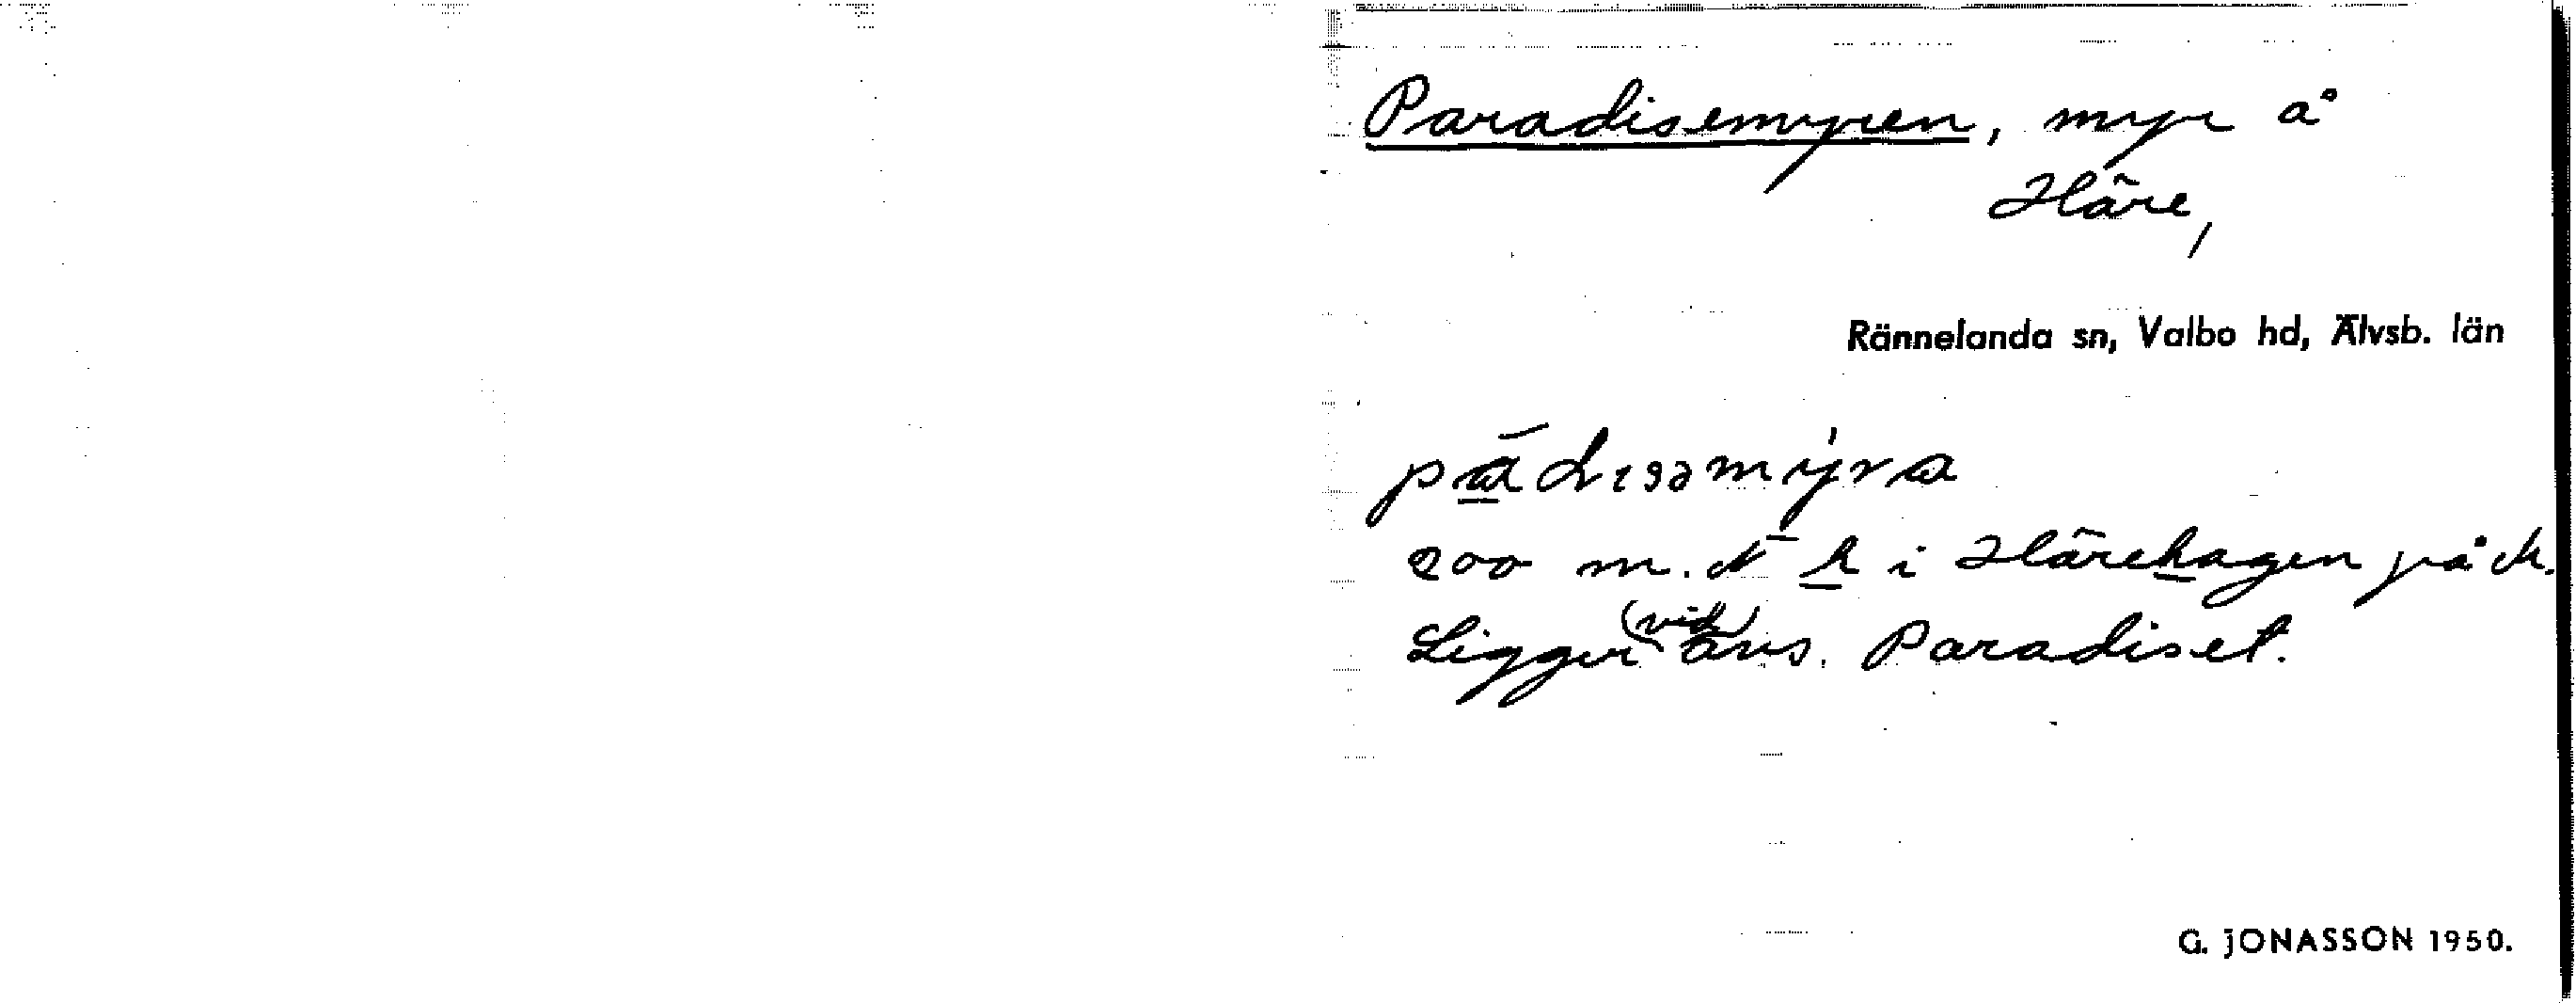 Paradisemyren, myr å
Häre,
Rännelanda sn, Valbo hd, Älvsb. län
200 m. N h i Härehagen på ek.
Ligger (vid) äns. Paradiset.
G. JONASSON 1950.